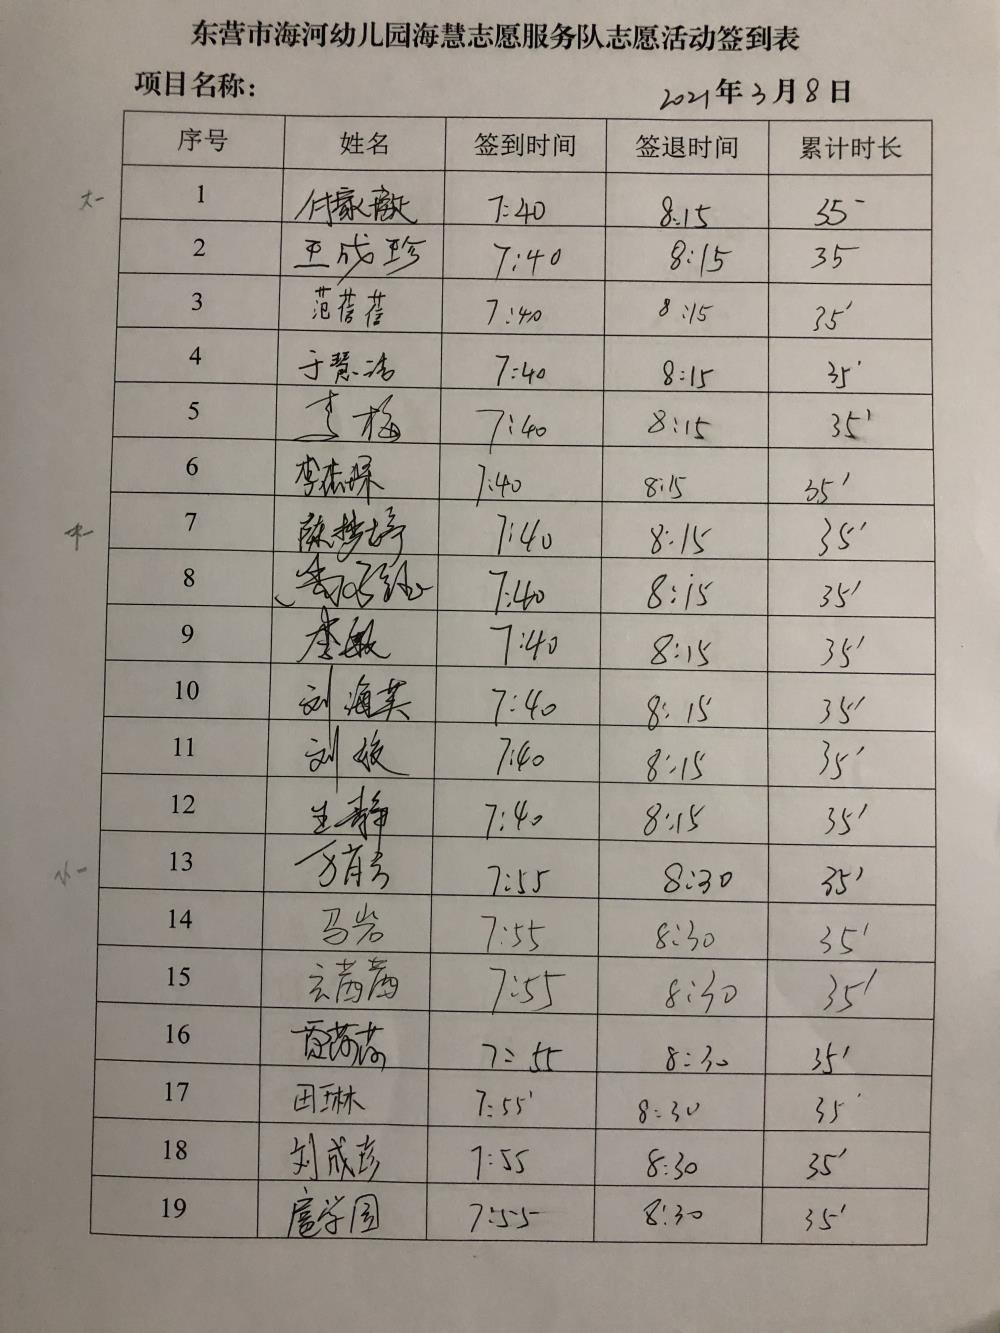 东营市海河幼儿园海慧志愿服务队志愿活动签到表
项目名称: 2021年3月8日
序号 姓名 签到时间 签退时间 累计时长
大一 1 7:40 8:15 35
2 王成珍 7:40 8:15 35
3 范蓓蓓 7:40 8:15 35'
4 于慧洁 7:40 8:15 35'
5 李梅 7:40 8:15 35'
6 李杰琛 7:40 8:15 35'
中一 7 陈梦婷 7:40 8:15 35'
8 7:40 8:15 35'
9 李敏 7:40 8:15 35'
10 刘海英 7:40 8:15 35'
11 刘 7:40 8:15 35'
12 王静 7:40 8:15 35'
小一 13 7:55 8:30 35'
14 马岩 7:55 8:30 35'
15 云茜茜 7:55 8:30 35'
16 7:55 8:30 35'
17 田琳 7:55' 8:30 35'
18 刘成彦 7:55 8:30 35'
19 扈学国 7:55 8:30 35'